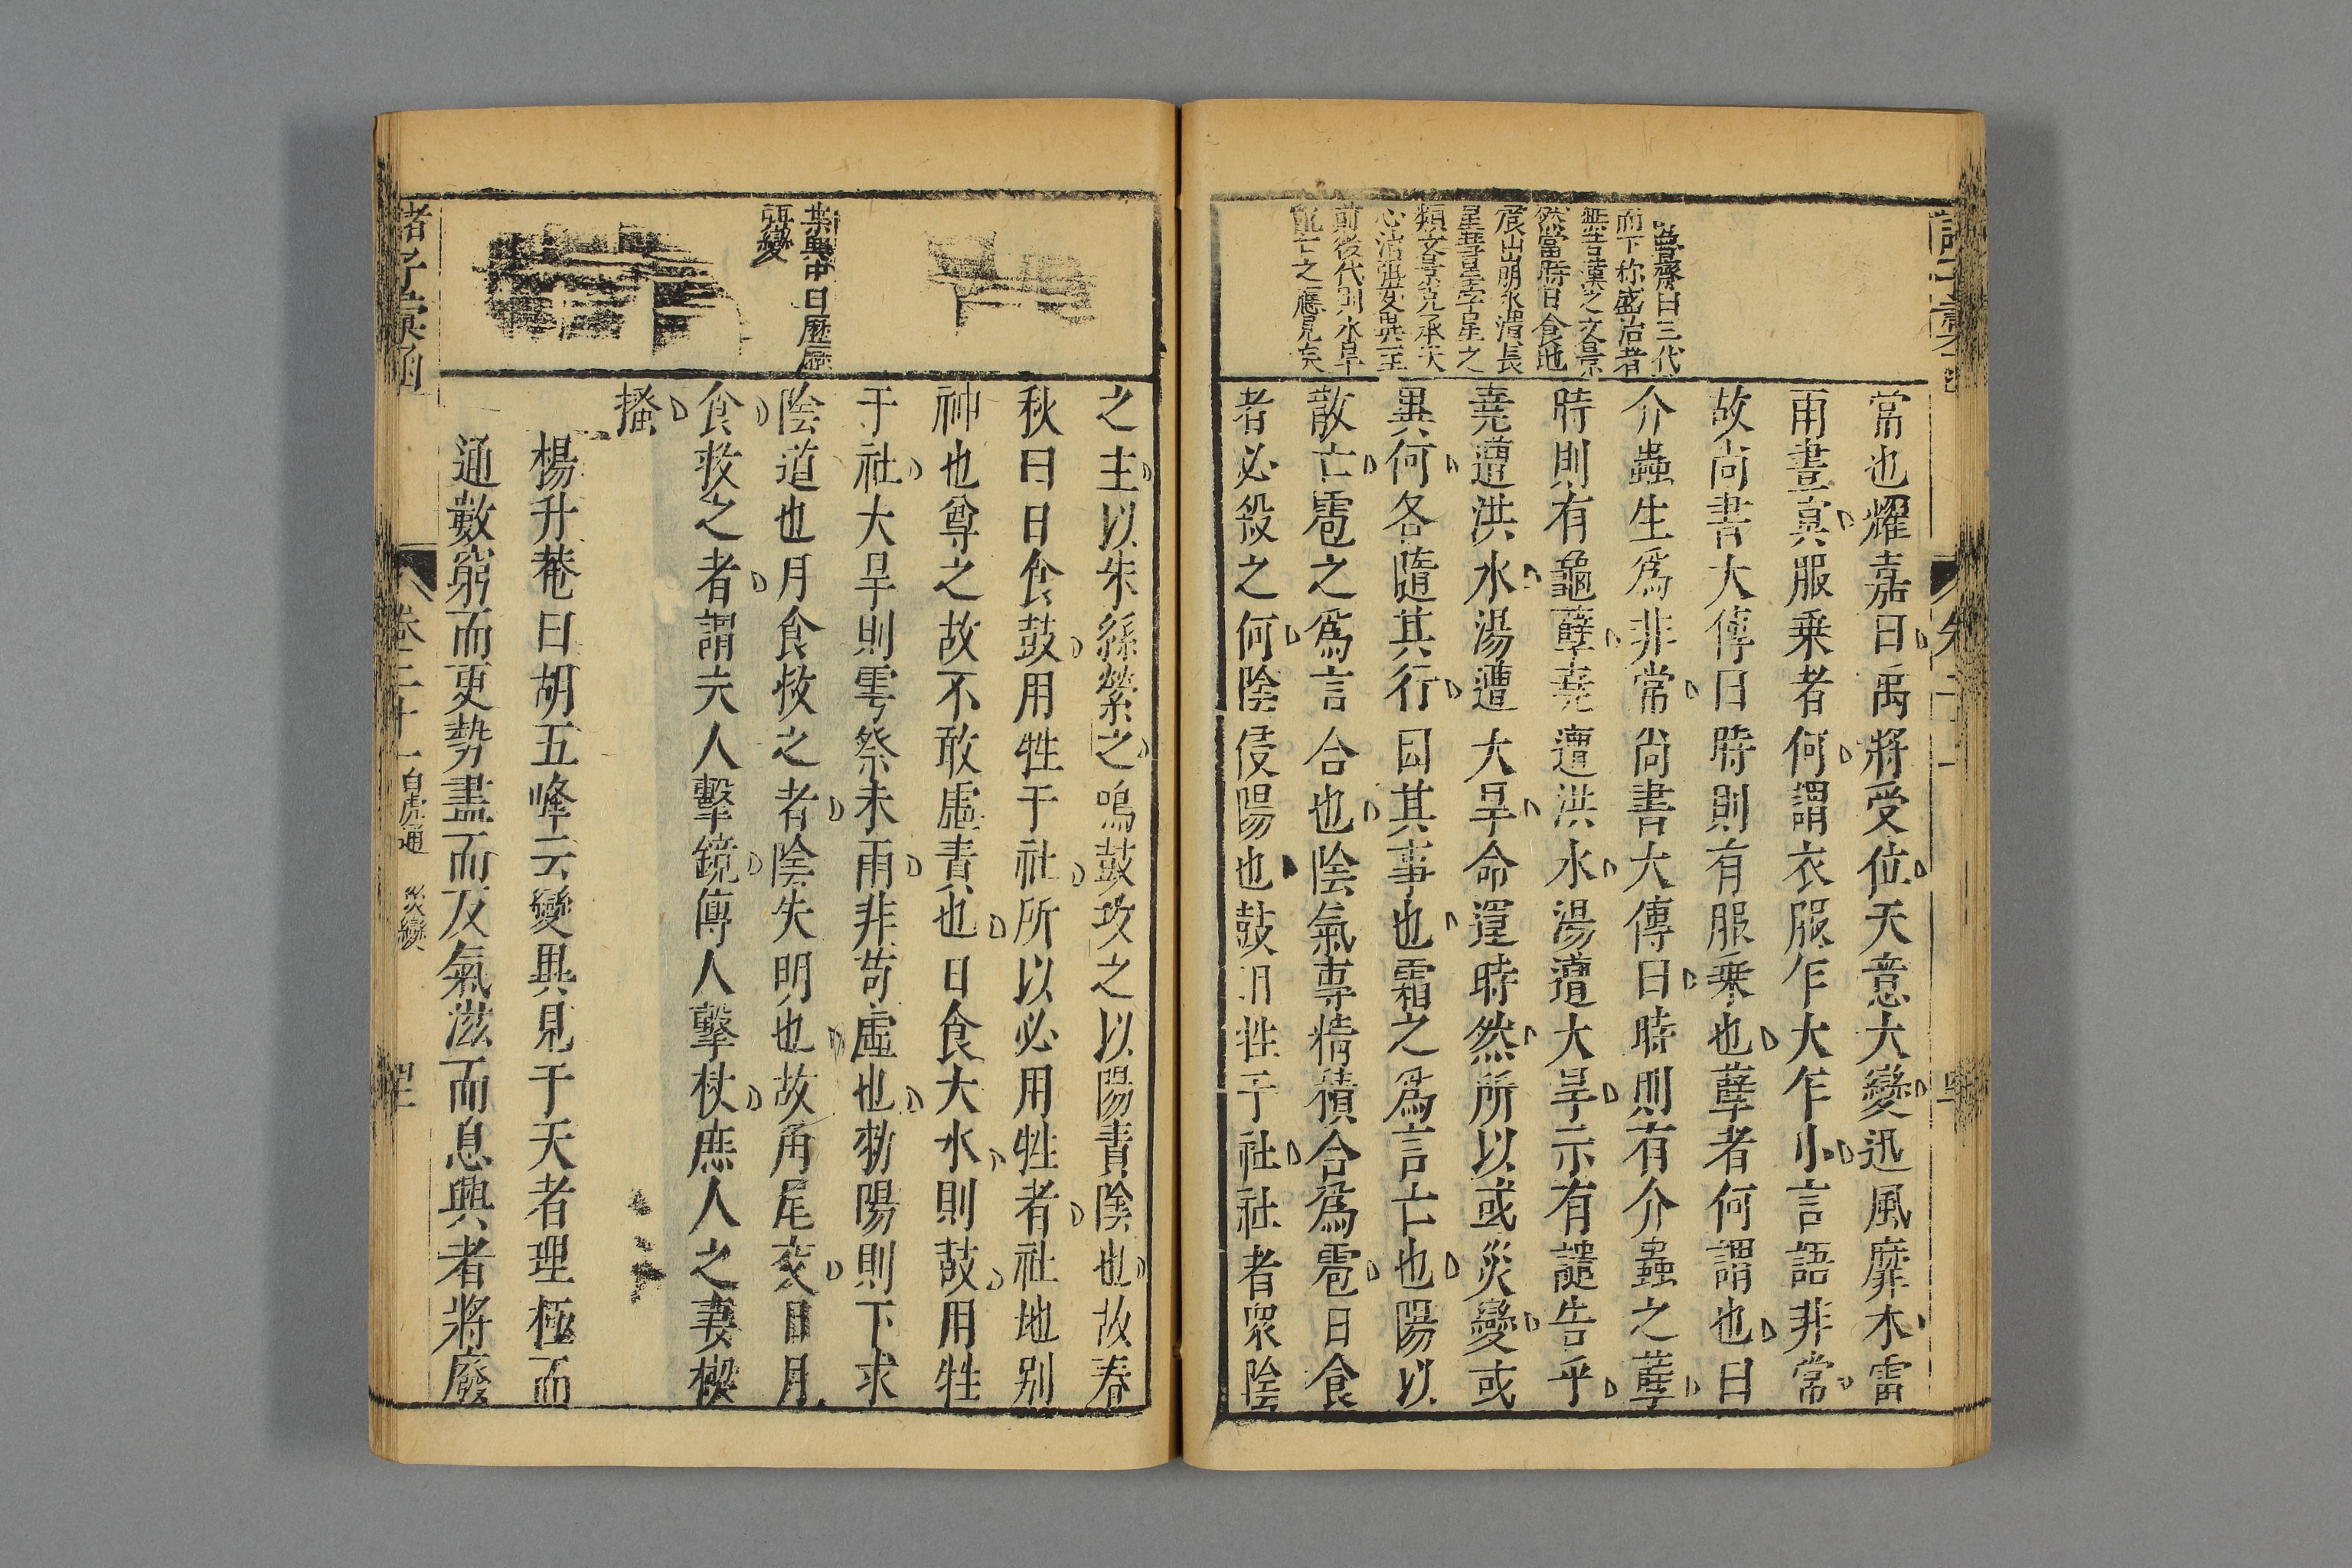 魯齋曰三代
而下称盛治者
無若漢之文景
然當時日食地
震山崩水潰長
星彗星孛星之
類文景克承天
心消弭変異至
前後代則水旱
能亡之應見矣
常也耀嘉曰禹將受位天意大變迅風靡木雷
雨晝冥服乗者何謂衣服乍大乍小言語非常
故尚書大傳曰時則有服乗也孽者何謂也曰
介蟲生爲非常尚書大傳曰時則有介蟲之孽
時則有龜孽堯遭洪水湯遭大旱示有譴告乎
堯遭洪水湯遭大旱命運時然所以或災變或
異何各隨其行因其事也霜之爲言亡也陽以
散亡雹之爲言合也陰氣專精積合爲雹日食
者必殺之何陰侵陽也鼓用牲于社社者衆陰
之主以朱絲縈之鳴鼓攻之以陽責陰也故春
秋曰日食鼓用牲于社所以必用牲者社地别
神也尊之故不敢虛責也日食大水則鼓用牲
于社大旱則雩祭未雨非苟虛也勑陽則下求
陰道也月食救之者陰失明也故角尾交日月
食救之者謂夫人擊鏡傳人擊杖庶人之妻楔
搔
楊升菴曰胡五峰云變異見于天者理極而
通數窮而更勢盡而反氣滋而息興者將廢
葉輿中曰歷歷
張變
諸子彙函
卷二十一
白虎通
災變